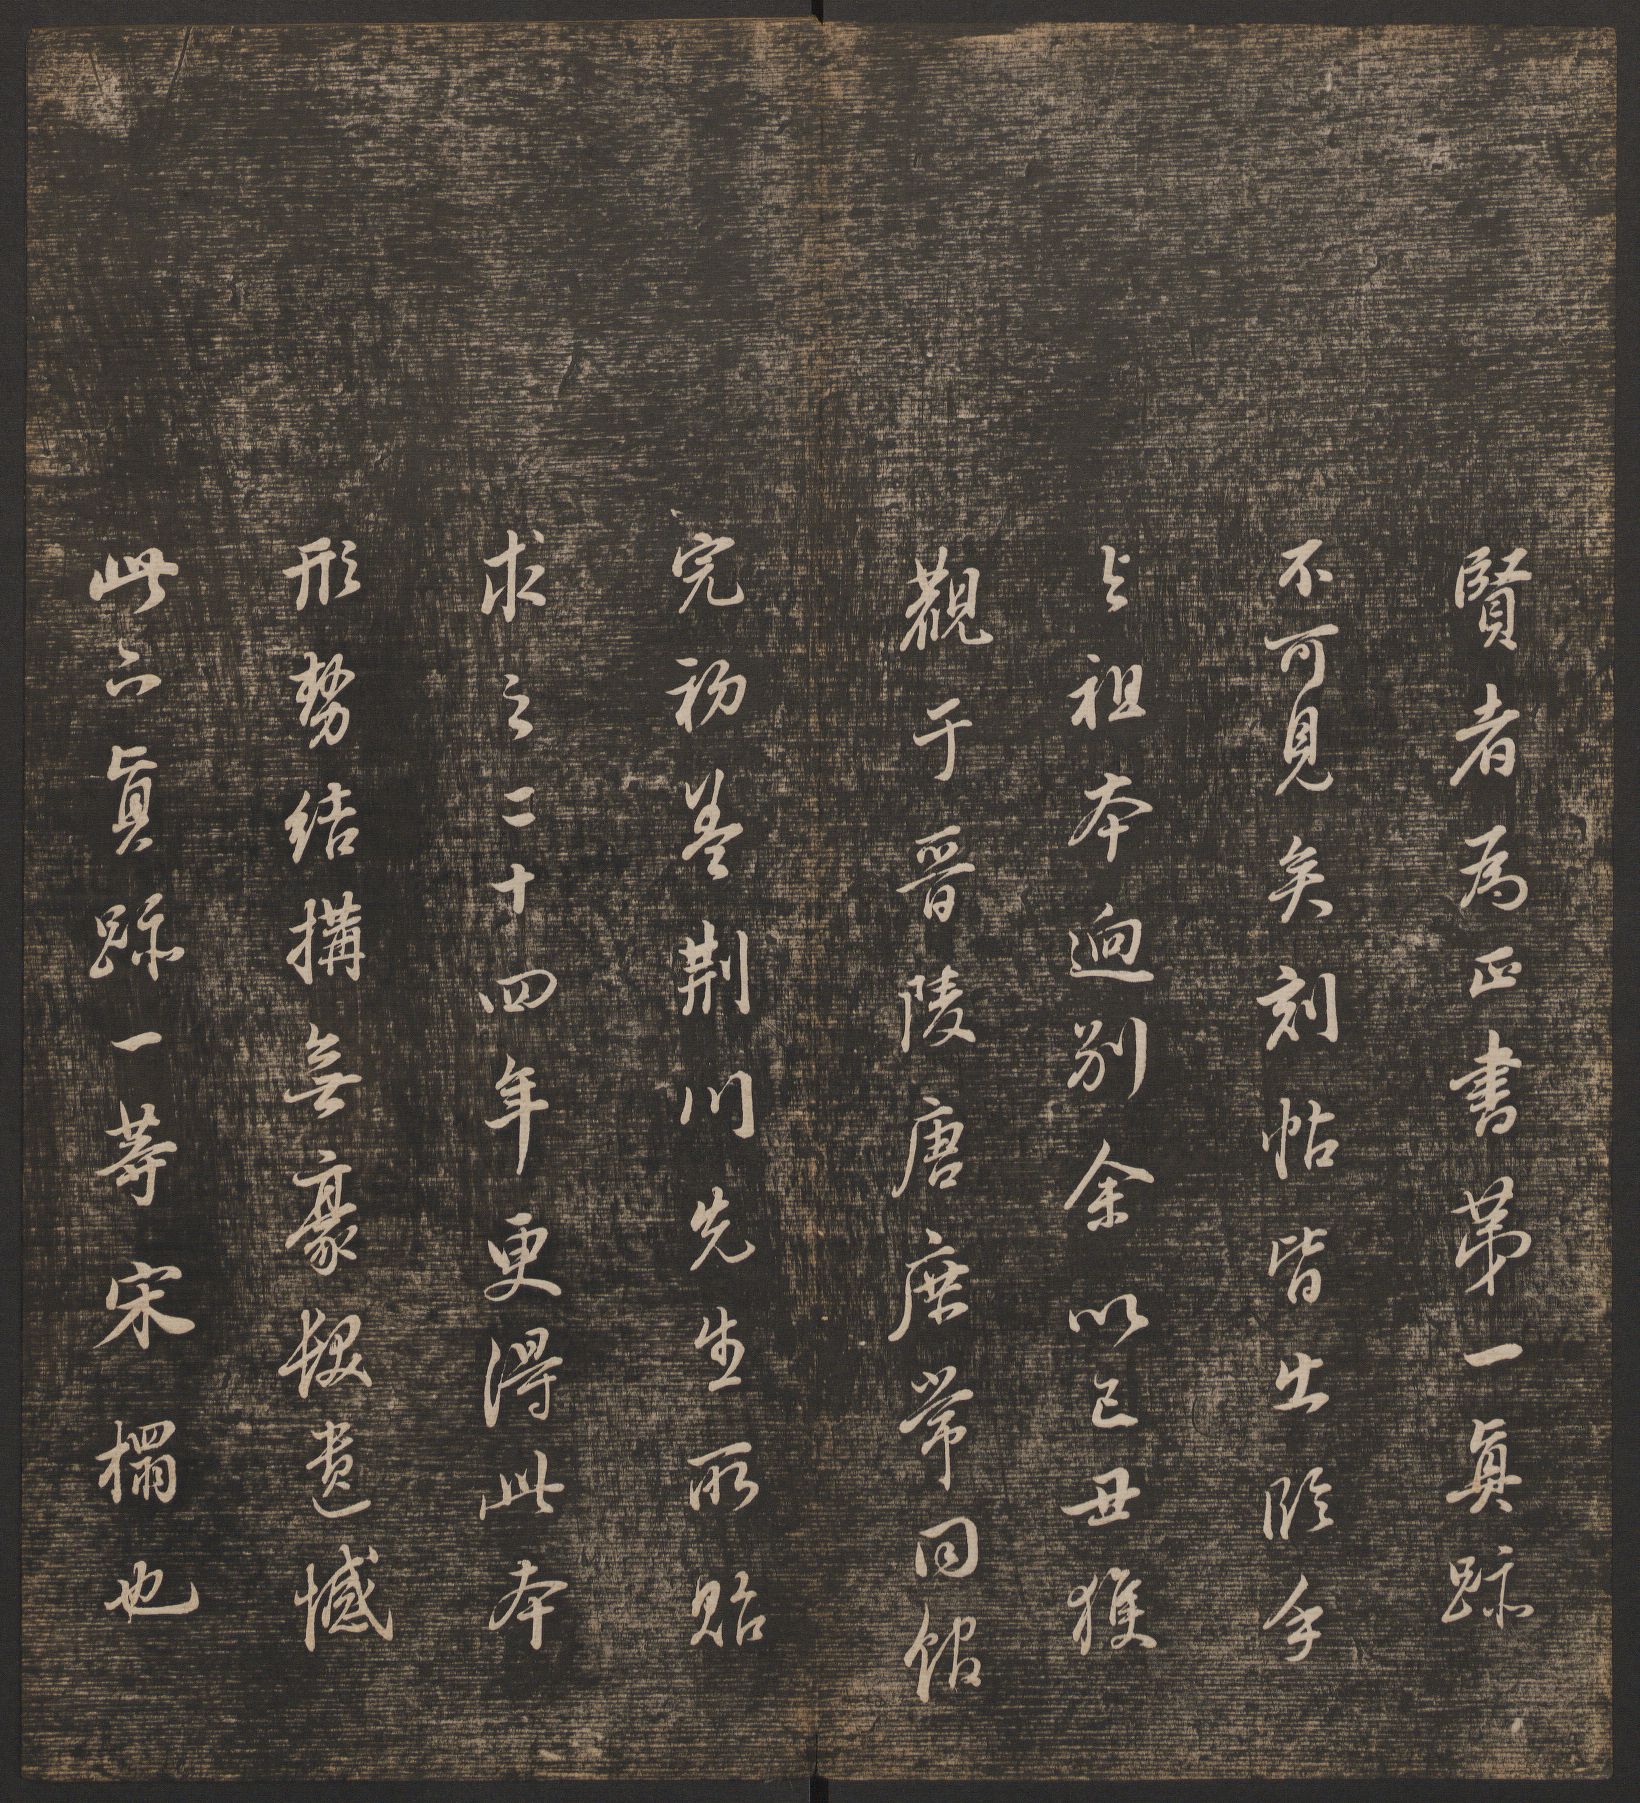 賢者為正書第一真跡
不可見矣刻帖皆出臨手
與祖本迥別余以己丑獲
觀于晉陵唐庶常同館
完初蓋荆川先生所貽
求之二十四年更得此本
形勢結搆無豪髮遺憾
此亦真跡一等宋榻也